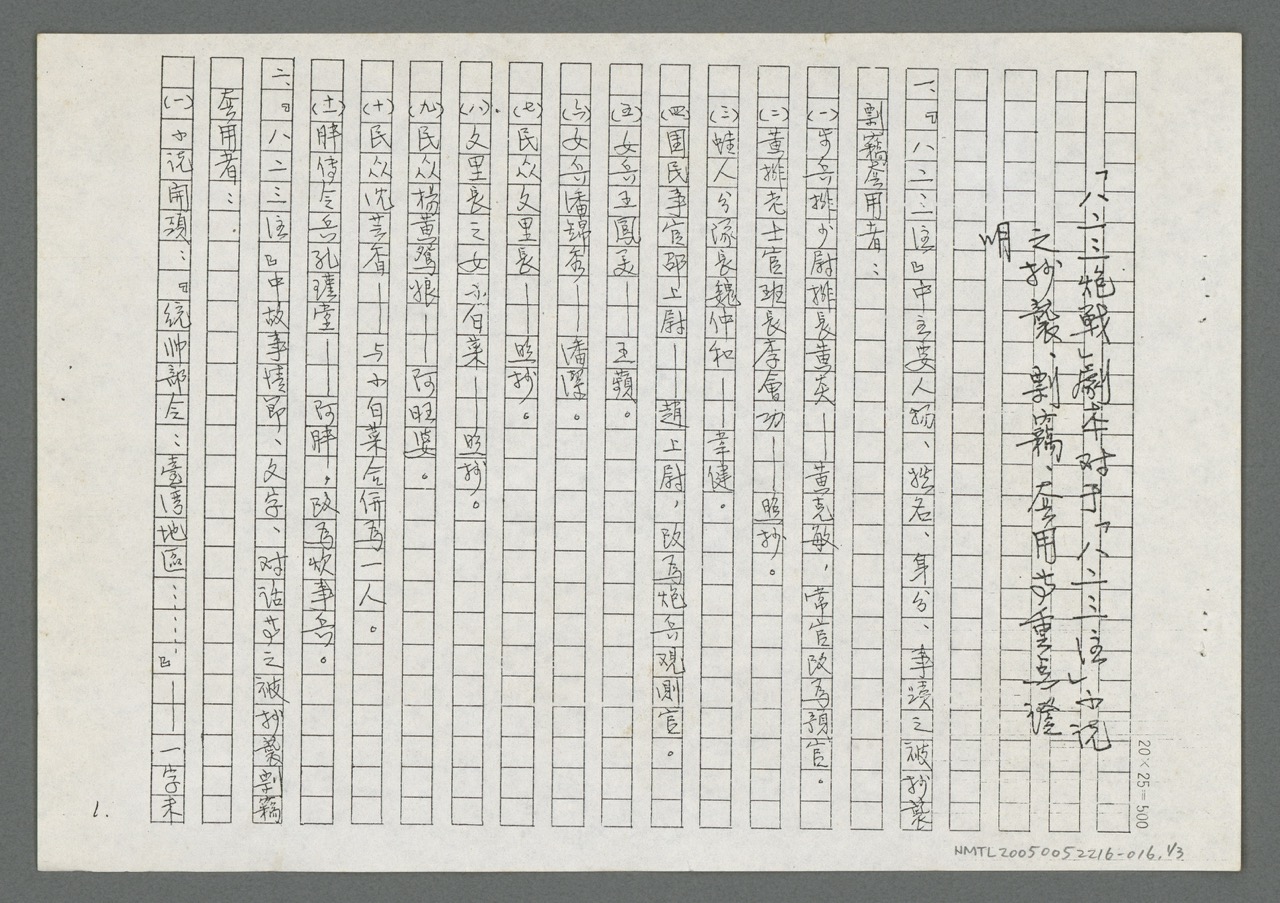 「八二三炮戰」劇本对于「八二三注」小说
之抄襲、剽竊、套用等重点證
明
一、『八二三注』中主要人物、姓名、身分、事蹟之被抄襲
剽竊套用者：
(一)步兵排少尉排長黃炎——黃克敏，常官改為預官。
(二)黃排老士官班長李會功——照抄。
(三)蛙人分隊長魏仲和——韋健。
(四)国民事官邵上尉——趙上尉，改為炮兵观測官。
(五)女兵王鳳美——王蘋。
(六)女兵潘錦秀——潘潔。
(七)民众文里長——照抄。
(八)文里長之女小白菜——照抄。
(九)民众楊黃鴛娘——阿旺婆。
(十)民众沈芸香——与小白菜合併為一人。
(十一)胖傳令兵孔瑾堂——阿胖，改為炊事兵。
二、『八二三注』中故事情節、文字、对话等之被抄襲剽竊
套用者：
(一)小说開頭：『統帅部令：臺湾地區……』——一字未
20×25=500
1.
NMTL20050052216-016.1/3